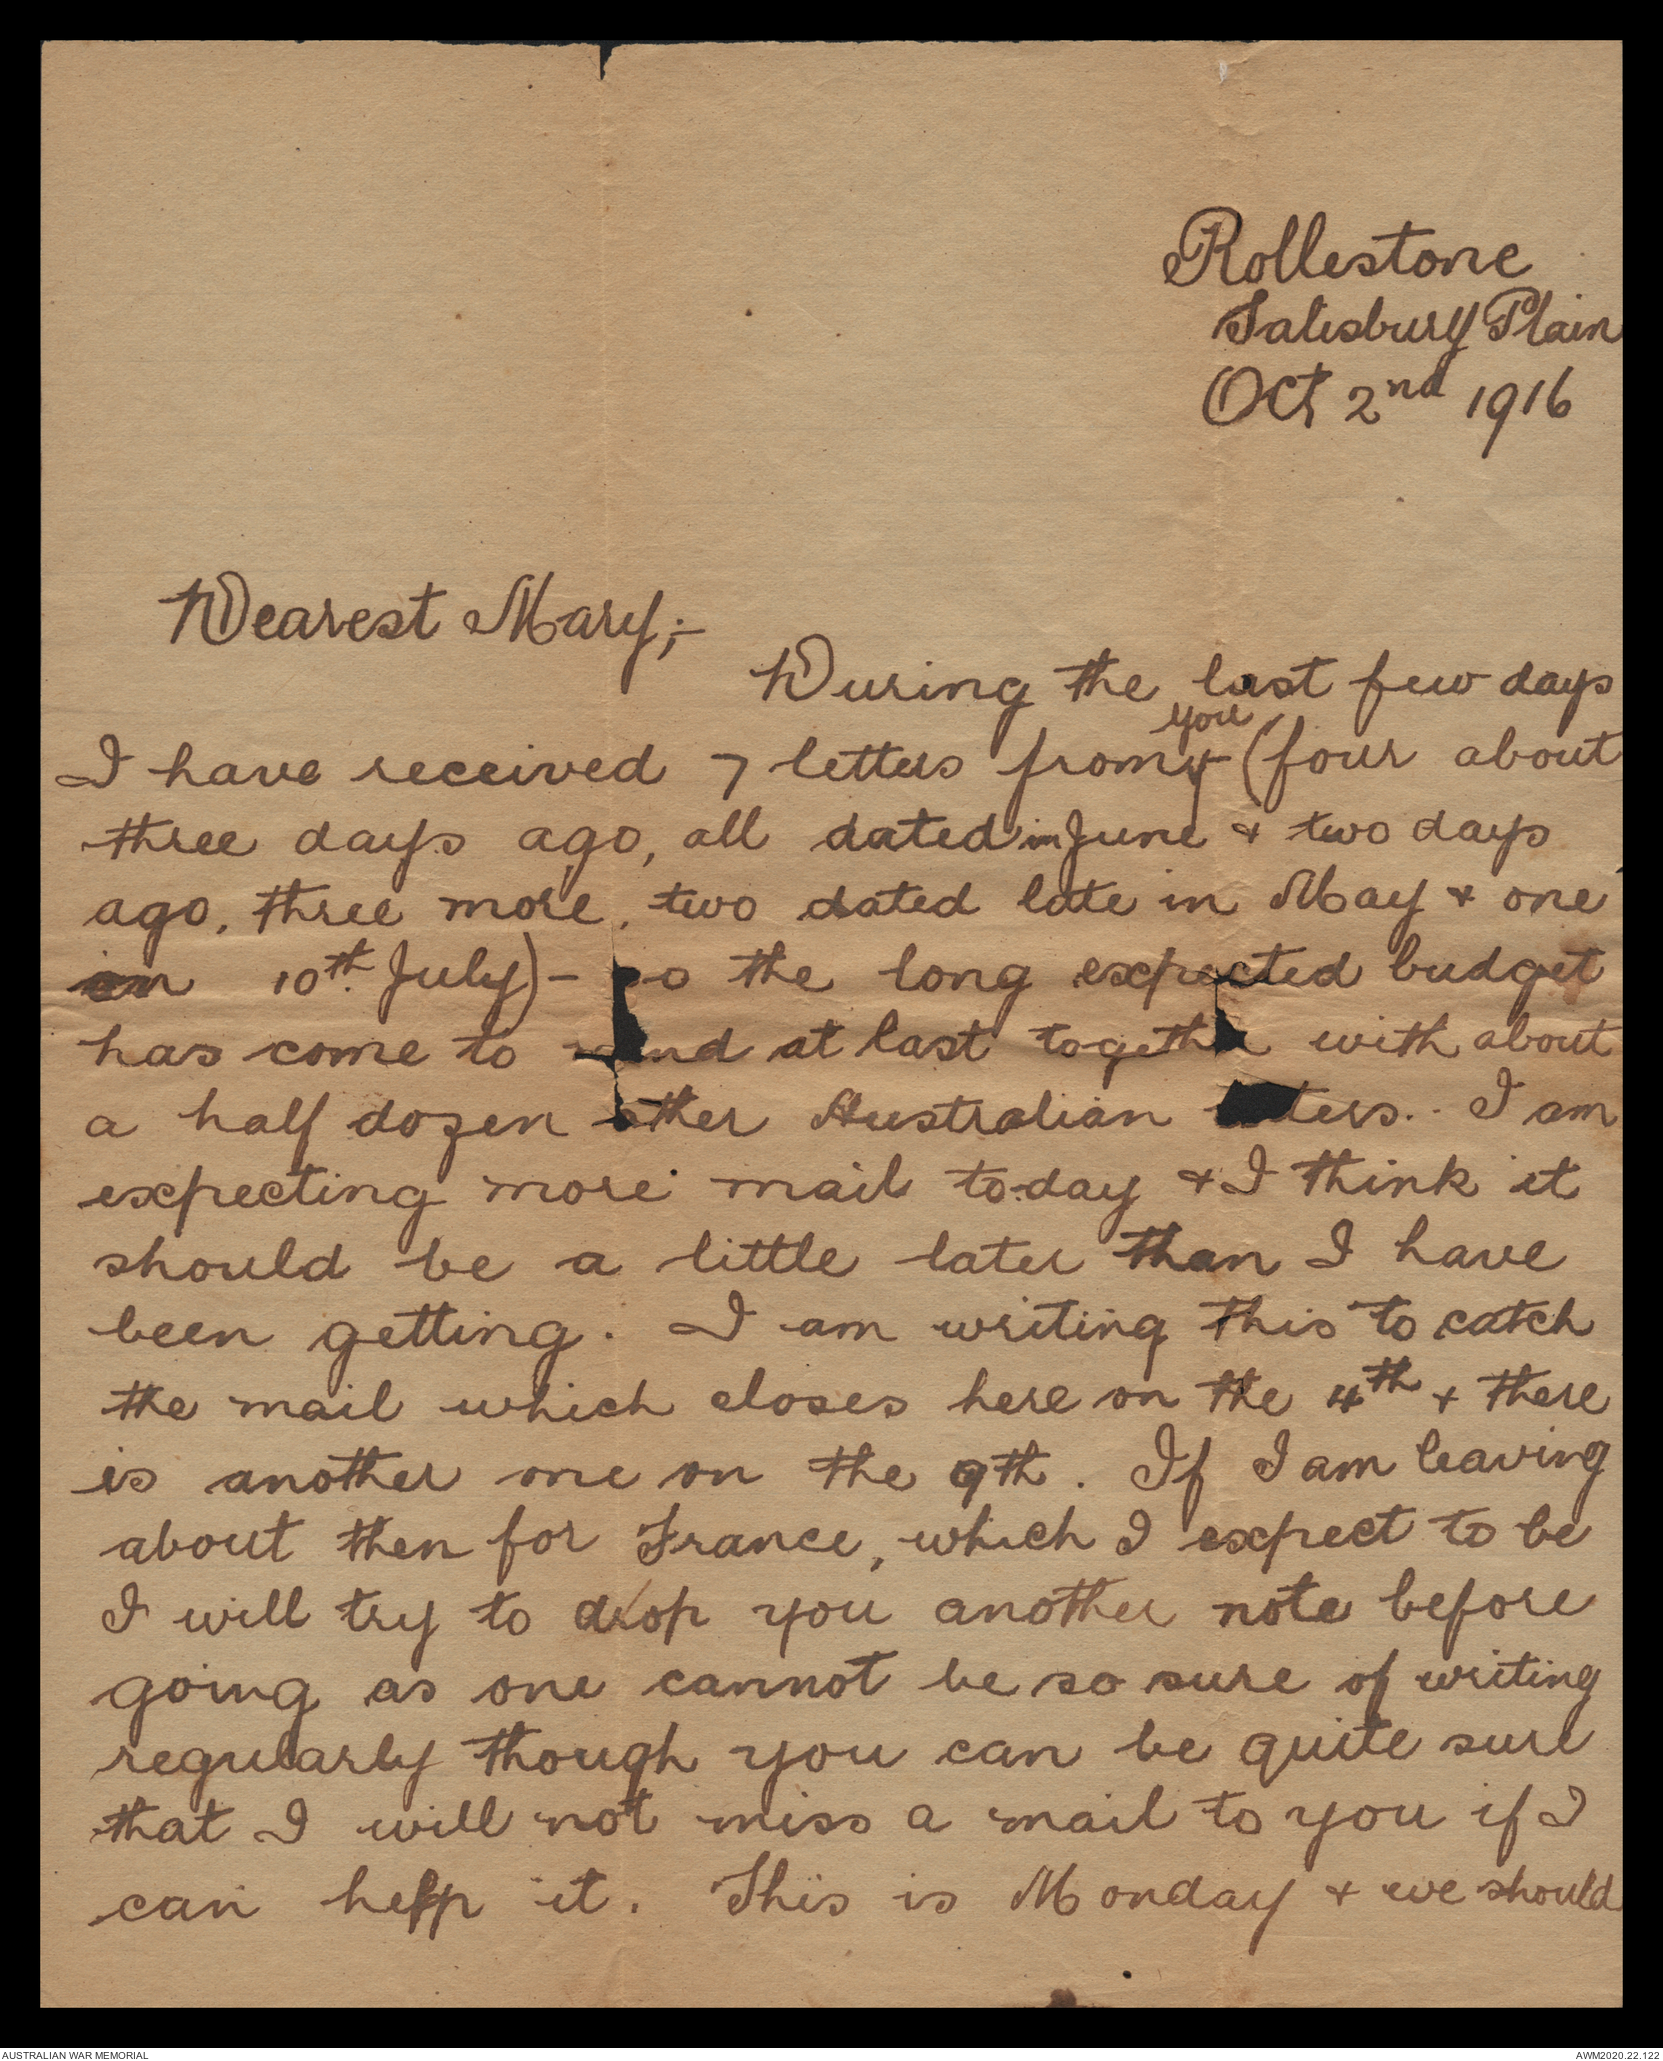 Rollestone
Salisbury Plain
Oct 2nd 1916
Dearest Mary;-
During the last few days
you
I have received 7 letters from (four about
three days ago, all dated in June & two days
ago, three more, two dated late in May & one
on 10th. July) - so the long expected budget
has come to hand at last together with about
a half dozen other Australian letters. I am
expecting more mail to-day & I think it
should be a little later than I have
been getting. I am writing this to catch
the mail which closes here on the 4th & there
is another one on the 9th. If I am leaving
about then for France, which I expect to be
I will try to drop you another note before
going as one cannot be so sure of writing
regularly though you can be quite sure
that I will not miss a mail to you if I
can help it. This is Monday & we should
AUSTRALIAN WAR MEMORIAL
AWM2020.22.122